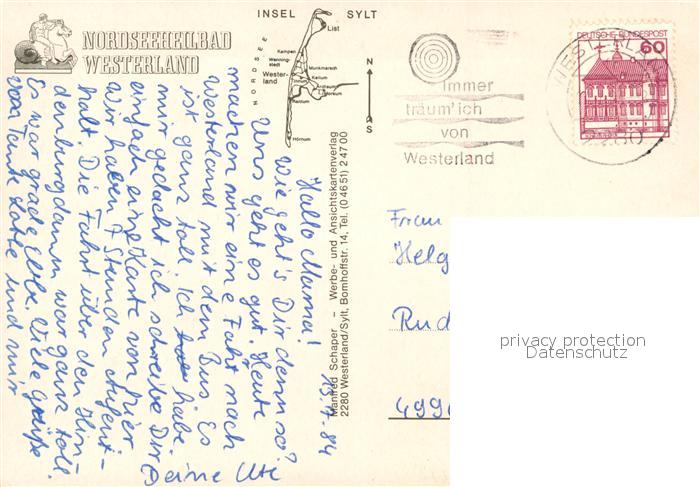 NORDSEEHEILBAD
WESTERLAND
INSEL SYLT
NORDSEE
List
Kampen
Wenning-
stedt
Wester-
land
Munkmarsch
Keitum
Tinnum
Archsum
Morsum
Rantum
Hörnum
N
S
immer
träum' ich
von
Westerland
DEUTSCHE BUNDESPOST
60
Manfred Schaper – Werbe- und Ansichtskartenverlag
2280 Westerland/Sylt, Bomhoffstr. 14, Tel. (0 46 51) 2 47 00
13.7.84
Hallo Mama!
Wie geht's Dir denn so?
Uns geht es gut. Heute
machen wir eine Fahrt nach
Westerland mit dem Bus. Es
ist ganz toll. Ich habe
mir gedacht ich schreibe Dir
einfach eine Karte von hier
wir haben 7 Stunden Aufent-
halt. Die Fahrt über den Hin-
denburgdamm war ganz toll.
Es war grade Ebbe. Viele Grüße
von Tante und mir
Deine Ute
Frau
Helg
Rud
499
privacy protection
Datenschutz